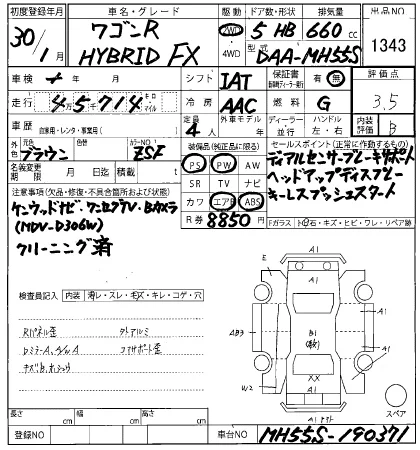 初度登録年月 車名・グレード 駆動 ドア数・形状 排気量 出品NO
30/1 ワゴンR HYBRID FX 2WD 4WD 5 HB 660 cc 1343
型式 DAA-MH55S
車検 年 月 シフト IAT 保証書 有 無 評価点
走行 4万5千714 キロ マイル 冷房 AAC 燃料 G 3.5
車歴 自家用・レンタ・事業用( ) 定員 4人 外車モデル 年 ディーラー 並行 ハンドル 左・右 内装 B
元色 色 ブラウン カラーNO ZSF 装備品(純正品に限る) セールスポイント(正常に動作するもの)
名義変更期限 月 日 迄 PS PW AW デュアルセンサーブレーキサポート
注意事項(欠品・修復・不具合箇所および状態) SR TV ナビ ヘッドアップディスプレー
ケンウッドナビ・ワンセグTV・Bカメラ カワ エアB ABS キーレスプッシュスタート
(MDV-D306W) R券 8850円
クリーニング済 Fガラス ト石・キズ・ヒビ・ワレ・リペア跡
検査員記入 内装 スレ・コゲ・穴
Rパネル歪
Dミラー
コアサポート歪
A1
E
A1
A1
AB3 B1 A1
XX
W2 A1
A1
スペア
長さ cm 幅 cm 高さ cm
登録NO 車台NO MH55S-190371